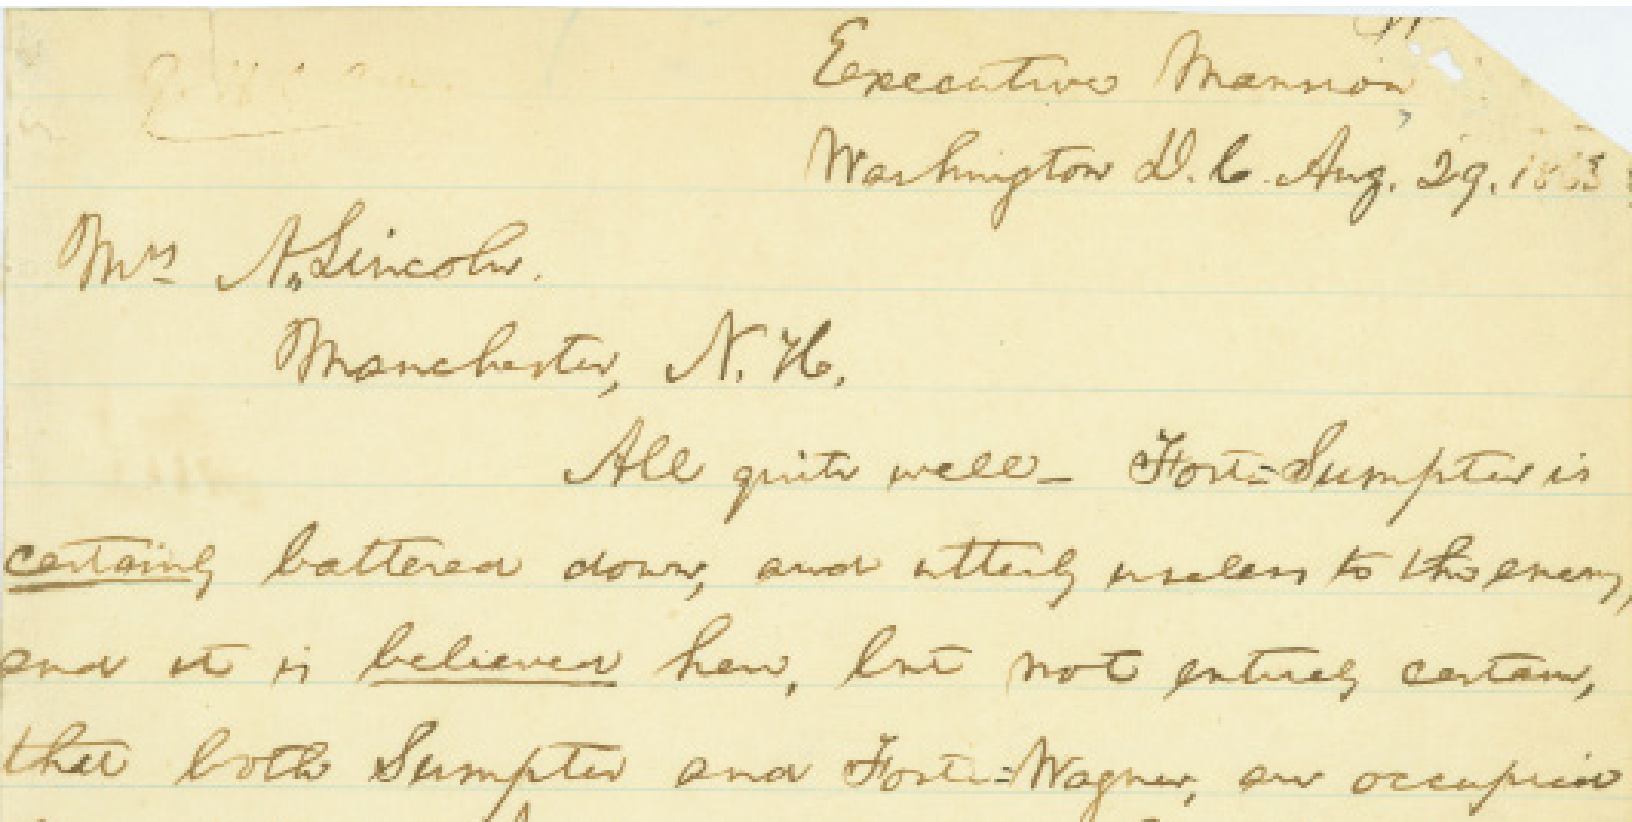 Executive Mansion,
Washington D.C. Aug. 29. 1863
Mrs A. Lincoln.
Manchester, N.H.
All quite well— Fort-Sumpter is
certainly battered down, and utterly useless to the enemy,
and it is believed here, but not entirely certain,
that both Sumpter and Fort-Wagner, are occupied